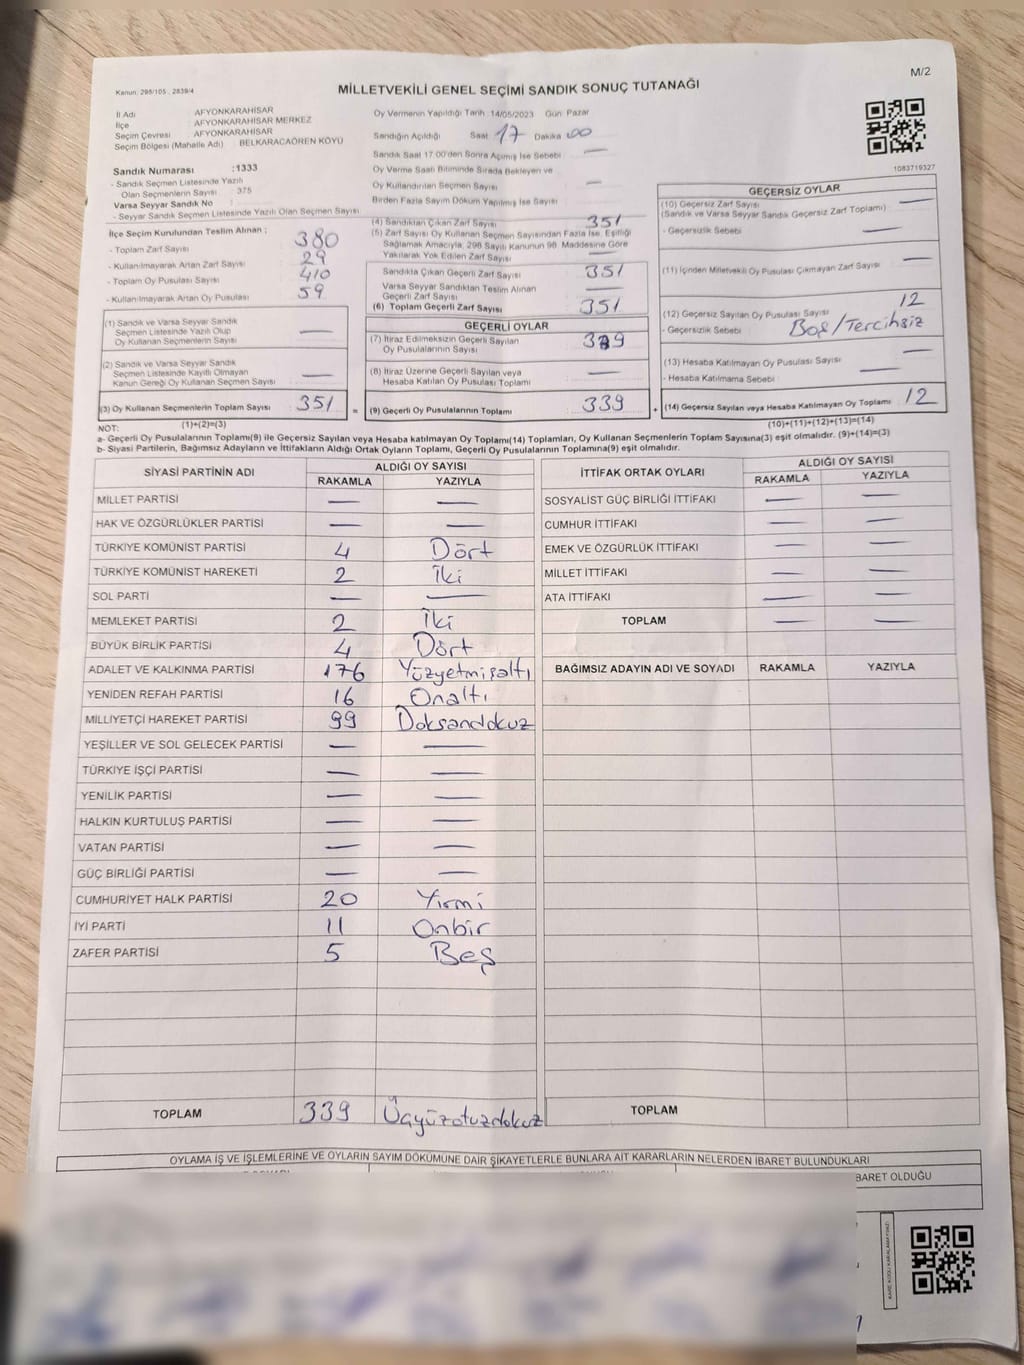 M/2
Kanun. 298/105 , 2839/4
MİLLETVEKİLİ GENEL SEÇİMİ SANDIK SONUÇ TUTANAĞI
İl Adı : AFYONKARAHİSAR
İlçe : AFYONKARAHİSAR MERKEZ
Seçim Çevresi : AFYONKARAHİSAR
Seçim Bölgesi (Mahalle Adı) : BELKARACAÖREN KÖYÜ
Sandık Numarası :1333
- Sandık Seçmen Listesinde Yazılı
Olan Seçmenlerin Sayısı : 375
Varsa Seyyar Sandık No :
- Seyyar Sandık Seçmen Listesinde Yazılı Olan Seçmen Sayısı
İlçe Seçim Kurulundan Teslim Alınan ;
- Toplam Zarf Sayısı 380
- Kullanılmayarak Artan Zarf Sayısı 29
- Toplam Oy Pusulası Sayısı 410
- Kullanılmayarak Artan Oy Pusulası 59
(1) Sandık ve Varsa Seyyar Sandık
Seçmen Listesinde Yazılı Olup
Oy Kullanan Seçmenlerin Sayısı —
(2) Sandık ve Varsa Seyyar Sandık
Seçmen Listesinde Kayıtlı Olmayan
Kanun Gereği Oy Kullanan Seçmen Sayısı —
(3) Oy Kullanan Seçmenlerin Toplam Sayısı 351 =
(1)+(2)=(3)
Oy Vermenin Yapıldığı Tarih :14/05/2023 Gün: Pazar
Sandığın Açıldığı Saat 17 Dakika 00
Sandık Saat 17.00'den Sonra Açılmış İse Sebebi —
Oy Verme Saati Bitiminde Sırada Bekleyen ve
Oy Kullandırılan Seçmen Sayısı —
Birden Fazla Sayım Döküm Yapılmış İse Sayısı
(4) Sandıktan Çıkan Zarf Sayısı 351
(5) Zarf Sayısı Oy Kullanan Seçmen Sayısından Fazla İse, Eşitliği
Sağlamak Amacıyla, 298 Sayılı Kanunun 98. Maddesine Göre
Yakılarak Yok Edilen Zarf Sayısı —
Sandıkta Çıkan Geçerli Zarf Sayısı 351
Varsa Seyyar Sandıktan Teslim Alınan
Geçerli Zarf Sayısı —
(6) Toplam Geçerli Zarf Sayısı 351
GEÇERLİ OYLAR
(7) İtiraz Edilmeksizin Geçerli Sayılan
Oy Pusulalarının Sayısı 339
(8) İtiraz Üzerine Geçerli Sayılan veya
Hesaba Katılan Oy Pusulası Toplamı —
(9) Geçerli Oy Pusulalarının Toplamı 339 +
1083719327
GEÇERSİZ OYLAR
(10) Geçersiz Zarf Sayısı
(Sandık ve Varsa Seyyar Sandık Geçersiz Zarf Toplamı) —
- Geçersizlik Sebebi —
(11) İçinden Milletvekili Oy Pusulası Çıkmayan Zarf Sayısı —
(12) Geçersiz Sayılan Oy Pusulası Sayısı 12
- Geçersizlik Sebebi Boş/Tercihsiz
(13) Hesaba Katılmayan Oy Pusulası Sayısı —
- Hesaba Katılmama Sebebi
(14) Geçersiz Sayılan veya Hesaba Katılmayan Oy Toplamı 12
(10)+(11)+(12)+(13)=(14)
NOT:
a- Geçerli Oy Pusulalarının Toplamı(9) ile Geçersiz Sayılan veya Hesaba katılmayan Oy Toplamı(14) Toplamları, Oy Kullanan Seçmenlerin Toplam Sayısına(3) eşit olmalıdır. (9)+(14)=(3)
b- Siyasi Partilerin, Bağımsız Adayların ve İttifakların Aldığı Ortak Oyların Toplamı, Geçerli Oy Pusulalarının Toplamına(9) eşit olmalıdır.
SİYASİ PARTİNİN ADI ALDIĞI OY SAYISI
RAKAMLA YAZIYLA
MİLLET PARTİSİ — —
HAK VE ÖZGÜRLÜKLER PARTİSİ — —
TÜRKİYE KOMÜNİST PARTİSİ 4 Dört
TÜRKİYE KOMÜNİST HAREKETİ 2 İki
SOL PARTİ — —
MEMLEKET PARTİSİ 2 İki
BÜYÜK BİRLİK PARTİSİ 4 Dört
ADALET VE KALKINMA PARTİSİ 176 Yüzyetmişaltı
YENİDEN REFAH PARTİSİ 16 Onaltı
MİLLİYETÇİ HAREKET PARTİSİ 99 Doksandokuz
YEŞİLLER VE SOL GELECEK PARTİSİ — —
TÜRKİYE İŞÇİ PARTİSİ — —
YENİLİK PARTİSİ — —
HALKIN KURTULUŞ PARTİSİ — —
VATAN PARTİSİ — —
GÜÇ BİRLİĞİ PARTİSİ — —
CUMHURİYET HALK PARTİSİ 20 Yirmi
İYİ PARTİ 11 Onbir
ZAFER PARTİSİ 5 Beş
TOPLAM 339 Üçyüzotuzdokuz
İTTİFAK ORTAK OYLARI ALDIĞI OY SAYISI
RAKAMLA YAZIYLA
SOSYALİST GÜÇ BİRLİĞİ İTTİFAKI — —
CUMHUR İTTİFAKI — —
EMEK VE ÖZGÜRLÜK İTTİFAKI — —
MİLLET İTTİFAKI — —
ATA İTTİFAKI — —
TOPLAM — —
BAĞIMSIZ ADAYIN ADI VE SOYADI RAKAMLA YAZIYLA
TOPLAM
OYLAMA İŞ VE İŞLEMLERİNE VE OYLARIN SAYIM DÖKÜMÜNE DAİR ŞİKAYETLERLE BUNLARA AİT KARARLARIN NELERDEN İBARET BULUNDUKLARI
BARET OLDUĞU